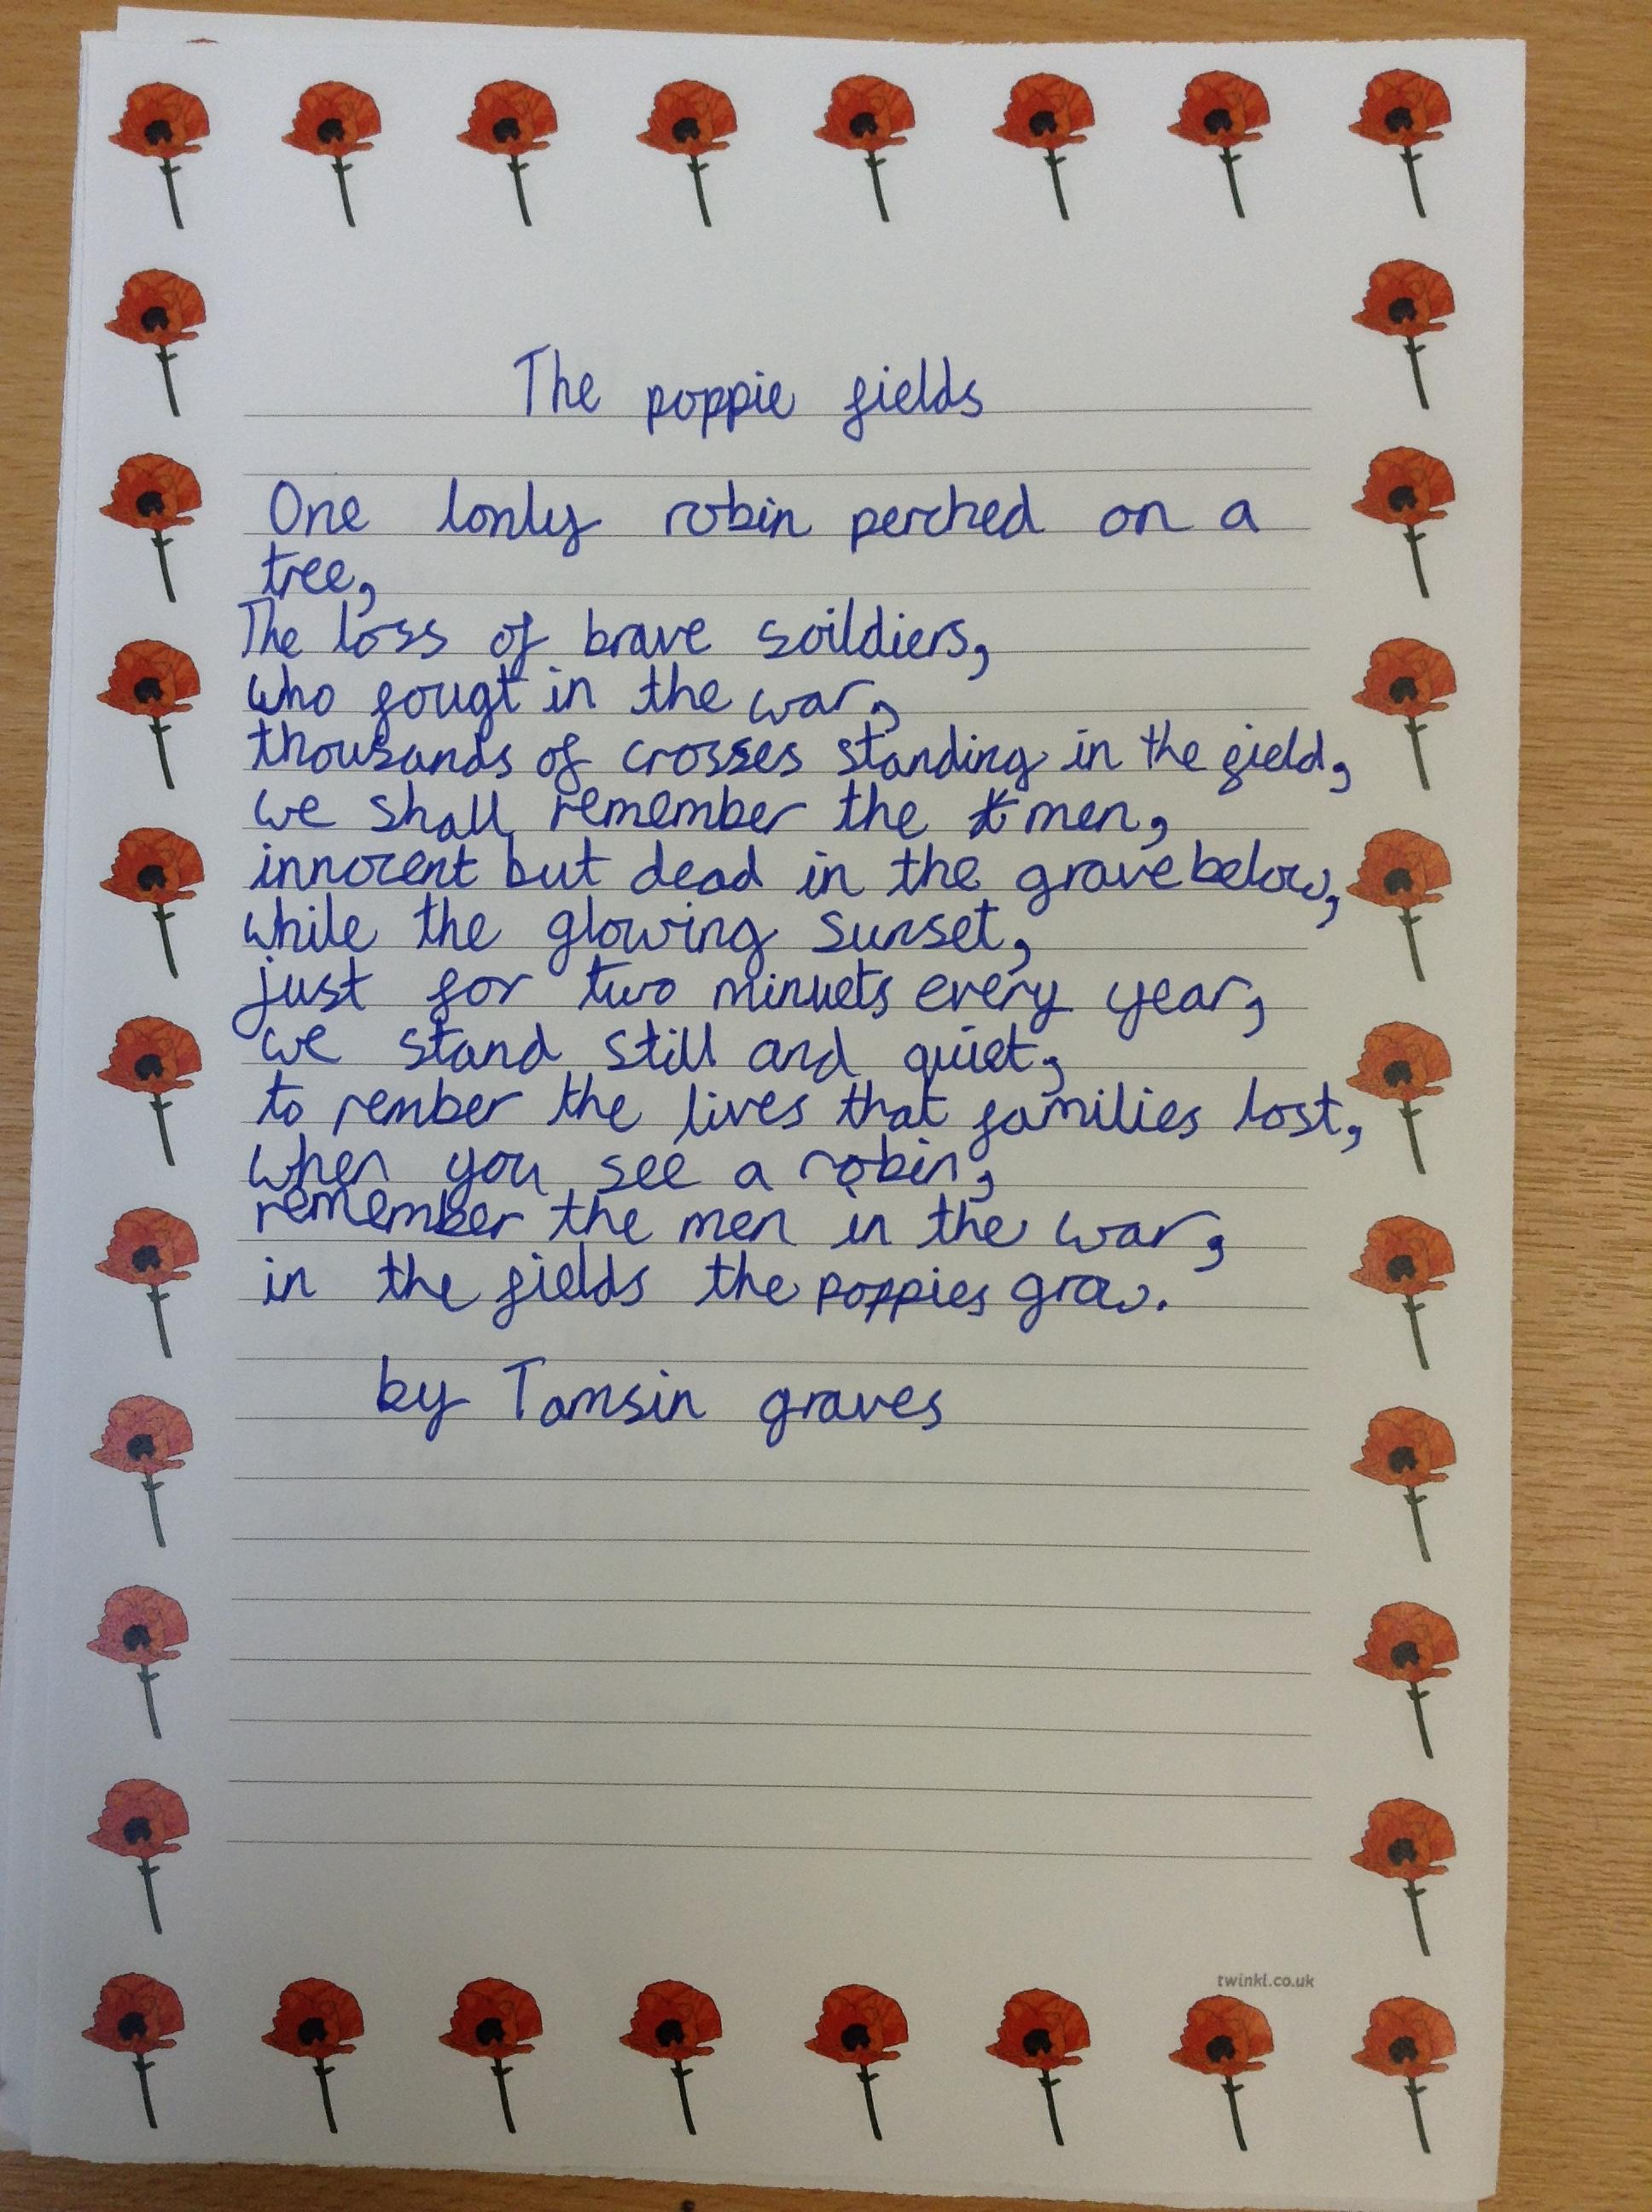 The poppie fields
One lonly robin perched on a
tree,
The loss of brave soildiers,
who fougt in the war,
thousands of crosses standing in the field,
we shall remember the men,
innocent but dead in the grave below,
while the glowing sunset,
just for two minuets every year,
we stand still and quiet,
to rember the lives that families lost,
when you see a robin,
remember the men in the war,
in the fields the poppies grow.
by Tamsin graves
twinkl.co.uk